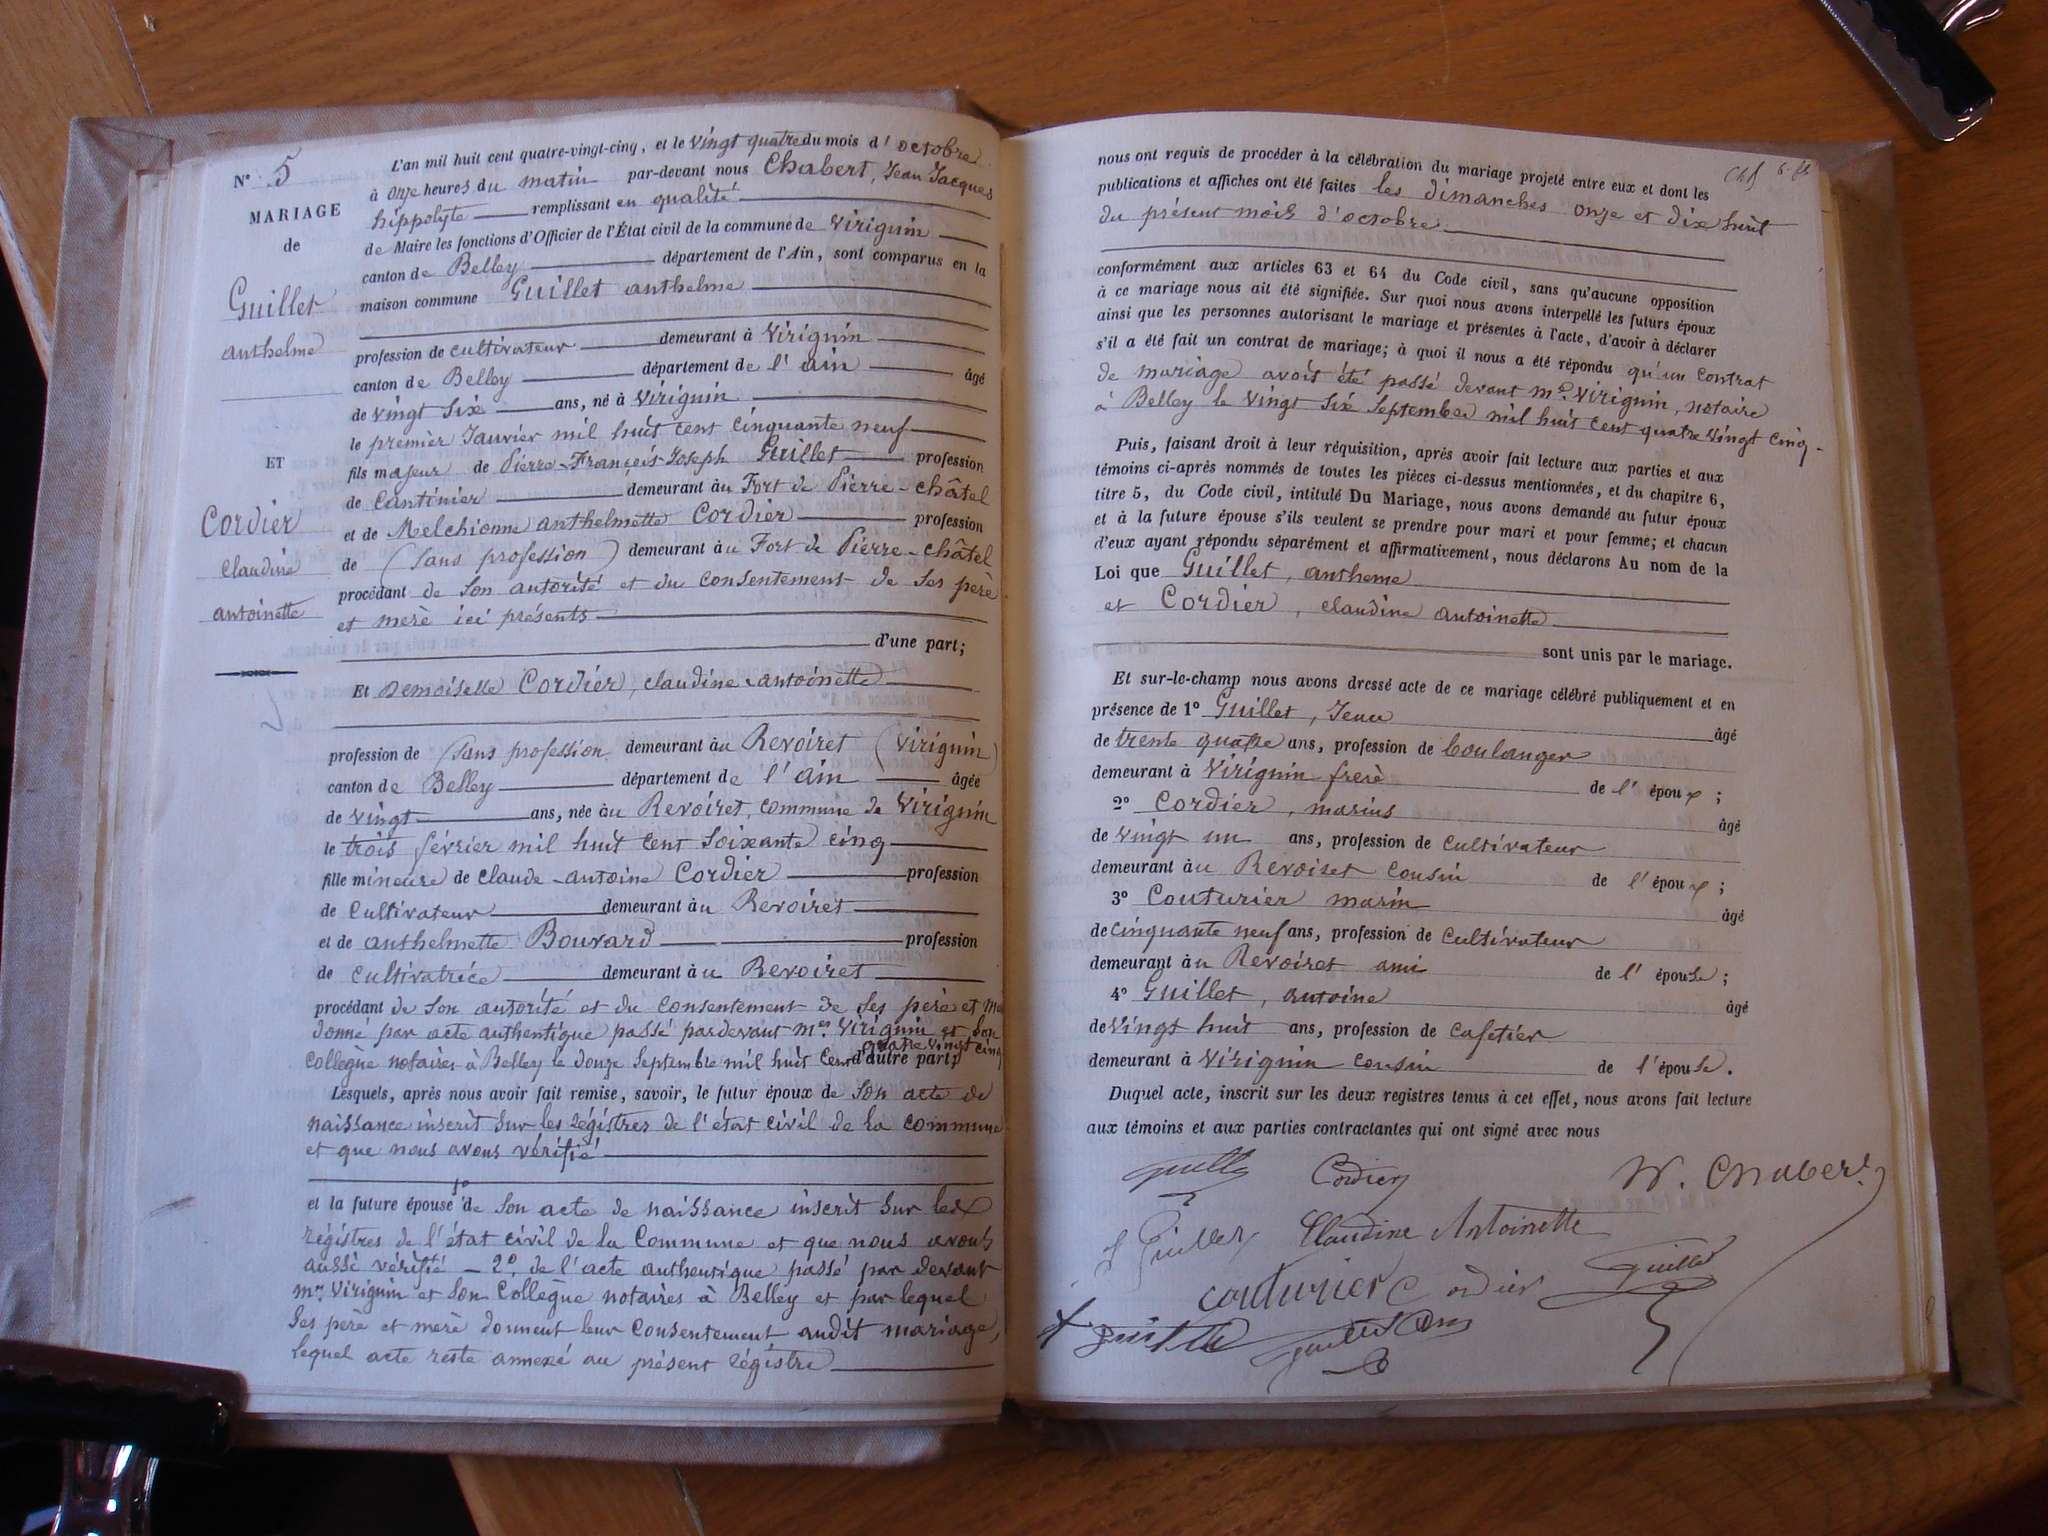 N° 5
MARIAGE
de
Guillet
anthelme
ET
Cordier
claudine
antoinette
L'an mil huit cent quatre-vingt-cinq, et le vingt quatre du mois d'octobre
à onze heures du matin par-devant nous Chabert, Jean Jacques
hippolyte remplissant en qualité
de Maire les fonctions d'Officier de l'État civil de la commune de Virignin
canton de Belley département de l'Ain, sont comparus en la
maison commune Guillet anthelme
profession de cultivateur demeurant à Virignin
canton de Belley département de l'ain âgé
de vingt six ans, né à Virignin
le premier Janvier mil huit cent cinquante neuf
fils majeur de Pierre-François-Joseph Guillet profession
de Cantinier demeurant au Fort de Pierre-châtel
et de Melchionne anthelmette Cordier profession
de (sans profession) demeurant au Fort de Pierre-châtel
procédant de son autorité et du consentement de ses perè
et merè ici présents
d'une part;
Et Demoiselle Cordier, claudine-antoinette
profession de (sans profession demeurant au Revoiret (Virignin)
canton de Belley département de l'ain âgée
de vingt ans, née au Revoiret, commune de Virignin
le trois février mil huit cent soixante cinq
fille mineure de claude-antoine Cordier profession
de cultivateur demeurant au Revoiret
et de anthelmette Bouvard profession
de cultivatrice demeurant au Revoiret
procédant de son autorité et du consentement de ses perè et
donné par acte authentique passé pardevant mes Virignin et son
quatre vingt cinq
collègue notaires à Belley le douze septembre mil huit cent d'autre part;
Lesquels, après nous avoir fait remise, savoir, le futur époux de son acte de
naissance inscrit sur les régistres de l'état civil de la commune
et que nous avons vérifié
et la future épouse 1° de son acte de naissance inscrit sur les
régistres de l'état civil de la Commune et que nous avons
aussi vérifié - 2° de l'acte authentique passé par devant
mes Virignin et son Collègue notaires à Belley et par lequel
ses perè et merè donnent leur consentement audit mariage,
lequel acte reste annexé au présent régistre
nous ont requis de procéder à la célébration du mariage projeté entre eux et dont les
publications et affiches ont été faites les dimanches onze et dix huit
du présent mois d'octobre
conformément aux articles 63 et 64 du Code civil, sans qu'aucune opposition
à ce mariage nous ait été signifiée. Sur quoi nous avons interpellé les futurs époux
ainsi que les personnes autorisant le mariage et présentes à l'acte, d'avoir à déclarer
s'il a été fait un contrat de mariage; à quoi il nous a été répondu qu'un contrat
de mariage avait été passé devant me Virignin, notaire
à Belley le vingt six septembre mil huit cent quatre vingt cinq -
Puis, faisant droit à leur réquisition, après avoir fait lecture aux parties et aux
témoins ci-après nommés de toutes les pièces ci-dessus mentionnées, et du chapitre 6,
titre 5, du Code civil, intitulé Du Mariage, nous avons demandé au futur époux
et à la future épouse s'ils veulent se prendre pour mari et pour femme; et chacun
d'eux ayant répondu séparément et affirmativement, nous déclarons Au nom de la
Loi que Guillet, antheme
et Cordier, claudine antoinette
sont unis par le mariage.
Et sur-le-champ nous avons dressé acte de ce mariage célébré publiquement et en
présence de 1° Guillet, Jean
âgé
de trente quatre ans, profession de boulanger
demeurant à Virignin frerè de l'époux;
2° Cordier, marius
âgé
de vingt un ans, profession de cultivateur
demeurant au Revoiret cousin de l'époux;
3° Couturier marin
âgé
de cinquante neuf ans, profession de cultivateur
demeurant au Revoiret ami de l'épouse;
4° Guillet, antoine
âgé
de Vingt huit ans, profession de cafetier
demeurant à Virignin cousin de l'épouse.
Duquel acte, inscrit sur les deux registres tenus à cet effet, nous avons fait lecture
aux témoins et aux parties contractantes qui ont signé avec nous
Cordier
H. Chabert
Claudine Antoinette
Guillet
couturier Cordier